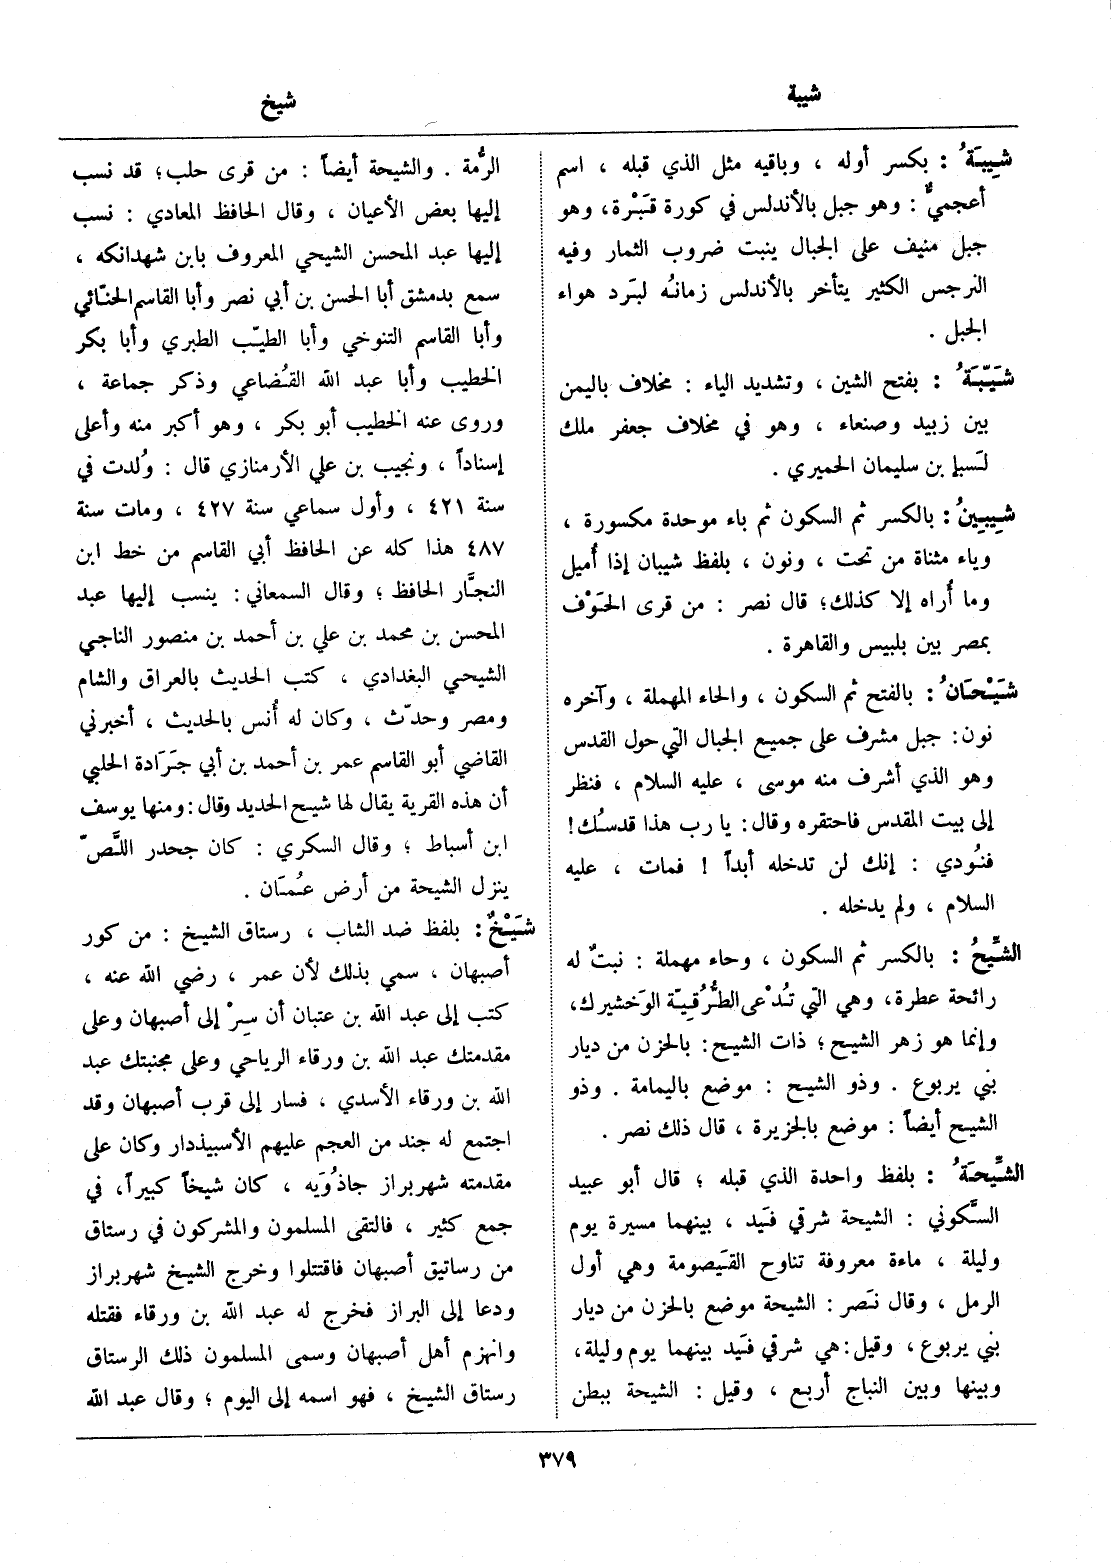 شيبة
شيخ
شِيبَةُ : بكسر أوله ، وباقيه مثل الذي قبله ، اسم
أعجميٌّ : وهو جبل بالأندلس في كورة قَبْرة، وهو
جبل منيف على الجبال ينبت ضروب الثمار وفيه
النرجس الكثير يتأخر بالأندلس زمانُه لبَرد هواء
الجبل .
شَيِّبَةُ : بفتح الشين ، وتشديد الياء : مخلاف باليمن
بين زبيد وصنعاء ، وهو في مخلاف جعفر ملك
لسبإ بن سليمان الحميري .
شِيبِينُ : بالكسر ثم السكون ثم باء موحدة مكسورة ،
وياء مثناة من تحت ، ونون ، بلفظ شيبان إذا أُميل
وما أُراه إلا كذلك؛ قال نصر : من قرى الحَوْف
بمصر بين بلبيس والقاهرة .
شَيْحَانُ : بالفتح ثم السكون ، والحاء المهملة ، وآخره
نون: جبل مشرف على جميع الجبال التي حول القدس
وهو الذي أشرف منه موسى ، عليه السلام ، فنظر
إلى بيت المقدس فاحتقره وقال: يا رب هذا قدسُك!
فنُودي : إنك لن تدخله أبداً ! فمات ، عليه
السلام ، ولم يدخله .
الشِّيحُ : بالكسر ثم السكون ، وحاء مهملة : نبتٌ له
رائحة عطرة، وهي التي تُدْعى الطُّرُقِيّة الوَخشيرك،
وإنما هو زهر الشيح؛ ذات الشيح: بالحزن من ديار
بني يربوع . وذو الشيح : موضع باليمامة . وذو
الشيح أيضاً : موضع بالجزيرة ، قال ذلك نصر .
الشِّيحَةُ : بلفظ واحدة الذي قبله ؛ قال أبو عبيد
السَّكوني : الشيحة شرقي فَيد ، بينهما مسيرة يوم
وليلة ، ماءة معروفة تناوح القَيصومة وهي أول
الرمل ، وقال نَصر : الشيحة موضع بالحزن من ديار
بني يربوع، وقيل: هي شرقي فَيد بينهما يوم وليلة،
وبينها وبين النباج أربع ، وقيل : الشيحة ببطن
الرُّمة . والشيحة أيضاً : من قرى حلب؛ قد نسب
إليها بعض الأعيان ، وقال الحافظ المعادي : نسب
إليها عبد المحسن الشيحي المعروف بابن شهدانكه ،
سمع بدمشق أبا الحسن بن أبي نصر وأبا القاسم الحنّائي
وأبا القاسم التنوخي وأبا الطيّب الطبري وأبا بكر
الخطيب وأبا عبد الله القُضاعي وذكر جماعة ،
وروى عنه الخطيب أبو بكر ، وهو أكبر منه وأعلى
إسناداً ، ونجيب بن علي الأرمنازي قال : وُلدت في
سنة ٤٢١ ، وأول سماعي سنة ٤٢٧ ، ومات سنة
٤٨٧ هذا كله عن الحافظ أبي القاسم من خط ابن
النجَّار الحافظ ؛ وقال السمعاني : ينسب إليها عبد
المحسن بن محمد بن علي بن أحمد بن منصور الناجي
الشيحي البغدادي ، كتب الحديث بالعراق والشام
ومصر وحدّث ، وكان له أُنس بالحديث ، أخبرني
القاضي أبو القاسم عمر بن أحمد بن أبي جَرَادة الحلبي
أن هذه القرية يقال لها شيح الحديد وقال: ومنها يوسف
ابن أسباط ؛ وقال السكري : كان جحدر اللَّصّ
ينزل الشيحة من أرض عُمَان .
شَيْخٌ : بلفظ ضد الشاب ، رستاق الشيخ : من كور
أصبهان ، سمي بذلك لأن عمر ، رضي الله عنه ،
كتب إلى عبد الله بن عتبان أن سِرْ إلى أصبهان وعلى
مقدمتك عبد الله بن ورقاء الرياحي وعلى مجنبتك عبد
الله بن ورقاء الأسدي ، فسار إلى قرب أصبهان وقد
اجتمع له جند من العجم عليهم الأسبيذدار وكان على
مقدمته شهربراز جاذُوَيه ، كان شيخاً كبيراً، في
جمع كثير ، فالتقى المسلمون والمشركون في رستاق
من رساتيق أصبهان فاقتتلوا وخرج الشيخ شهربراز
ودعا إلى البراز فخرج له عبد الله بن ورقاء فقتله
وانهزم أهل أصبهان وسمى المسلمون ذلك الرستاق
رستاق الشيخ ، فهو اسمه إلى اليوم ؛ وقال عبد الله
٣٧٩